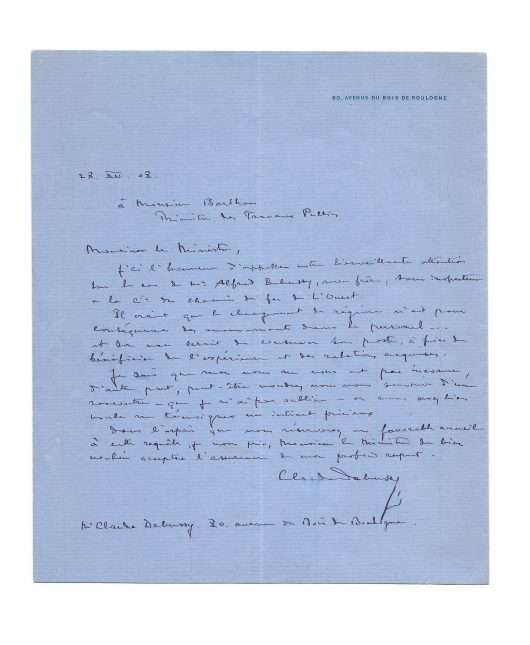 80, AVENUE DU BOIS DE BOULOGNE
28. XII. 08.
à Monsieur Barthou
Ministre des Travaux Publics
Monsieur le Ministre,
J'ai l'honneur d'appeler votre bienveillante attention
sur le cas de Mr Alfred Debussy, mon frère, sous-inspecteur
à la Cie des chemins de fer de l'Ouest.
Il craint que le changement de régime n'ait pour
conséquence des mouvements dans le personnel...
et son serait de conserver son poste, afin de
bénéficier de l'expérience et des relations acquises.
Je sais que mon nom ne vous est pas inconnu,
d'autre part, peut-être voudrez-vous vous souvenir d'une
rencontre – que je n'ai pas oubliée – où vous
me témoigner un intérêt précieux.
Dans l'espoir que vous réserverez un favorable accueil
à cette requête, je vous prie, Monsieur le Ministre de bien
vouloir accepter l'assurance de mon profond respect.
Claude Debussy
Mr Claude Debussy. 80. avenue du Bois de Boulogne.